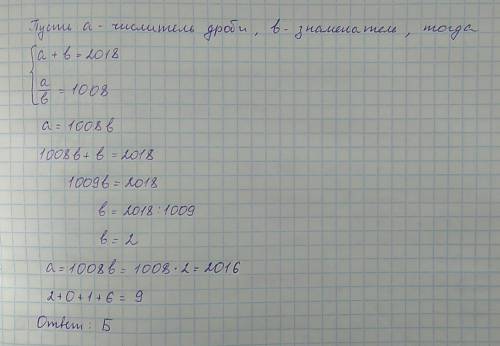 Пусть а - числитель дроби, в - знаменатель, тогда
а + в = 2018
а/в = 1008
а = 1008в
1008в + в = 2018
1009в = 2018
в = 2018 : 1009
в = 2
а = 1008в = 1008 · 2 = 2016
2+0+1+6 = 9
Ответ: Б